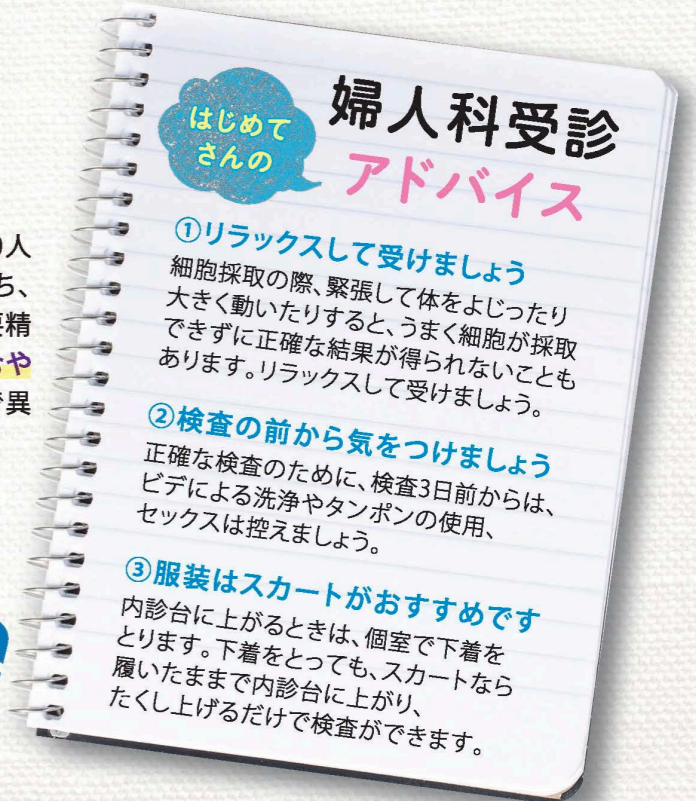 はじめて
さんの
婦人科受診
アドバイス
①リラックスして受けましょう
細胞採取の際、緊張して体をよじったり
大きく動いたりすると、うまく細胞が採取
できずに正確な結果が得られないことも
あります。リラックスして受けましょう。
②検査の前から気をつけましょう
正確な検査のために、検査3日前からは、
ビデによる洗浄やタンポンの使用、
セックスは控えましょう。
③服装はスカートがおすすめです
内診台に上がるときは、個室で下着を
とります。下着をとっても、スカートなら
履いたままで内診台に上がり、
たくし上げるだけで検査ができます。
人
ち、
精
や
異